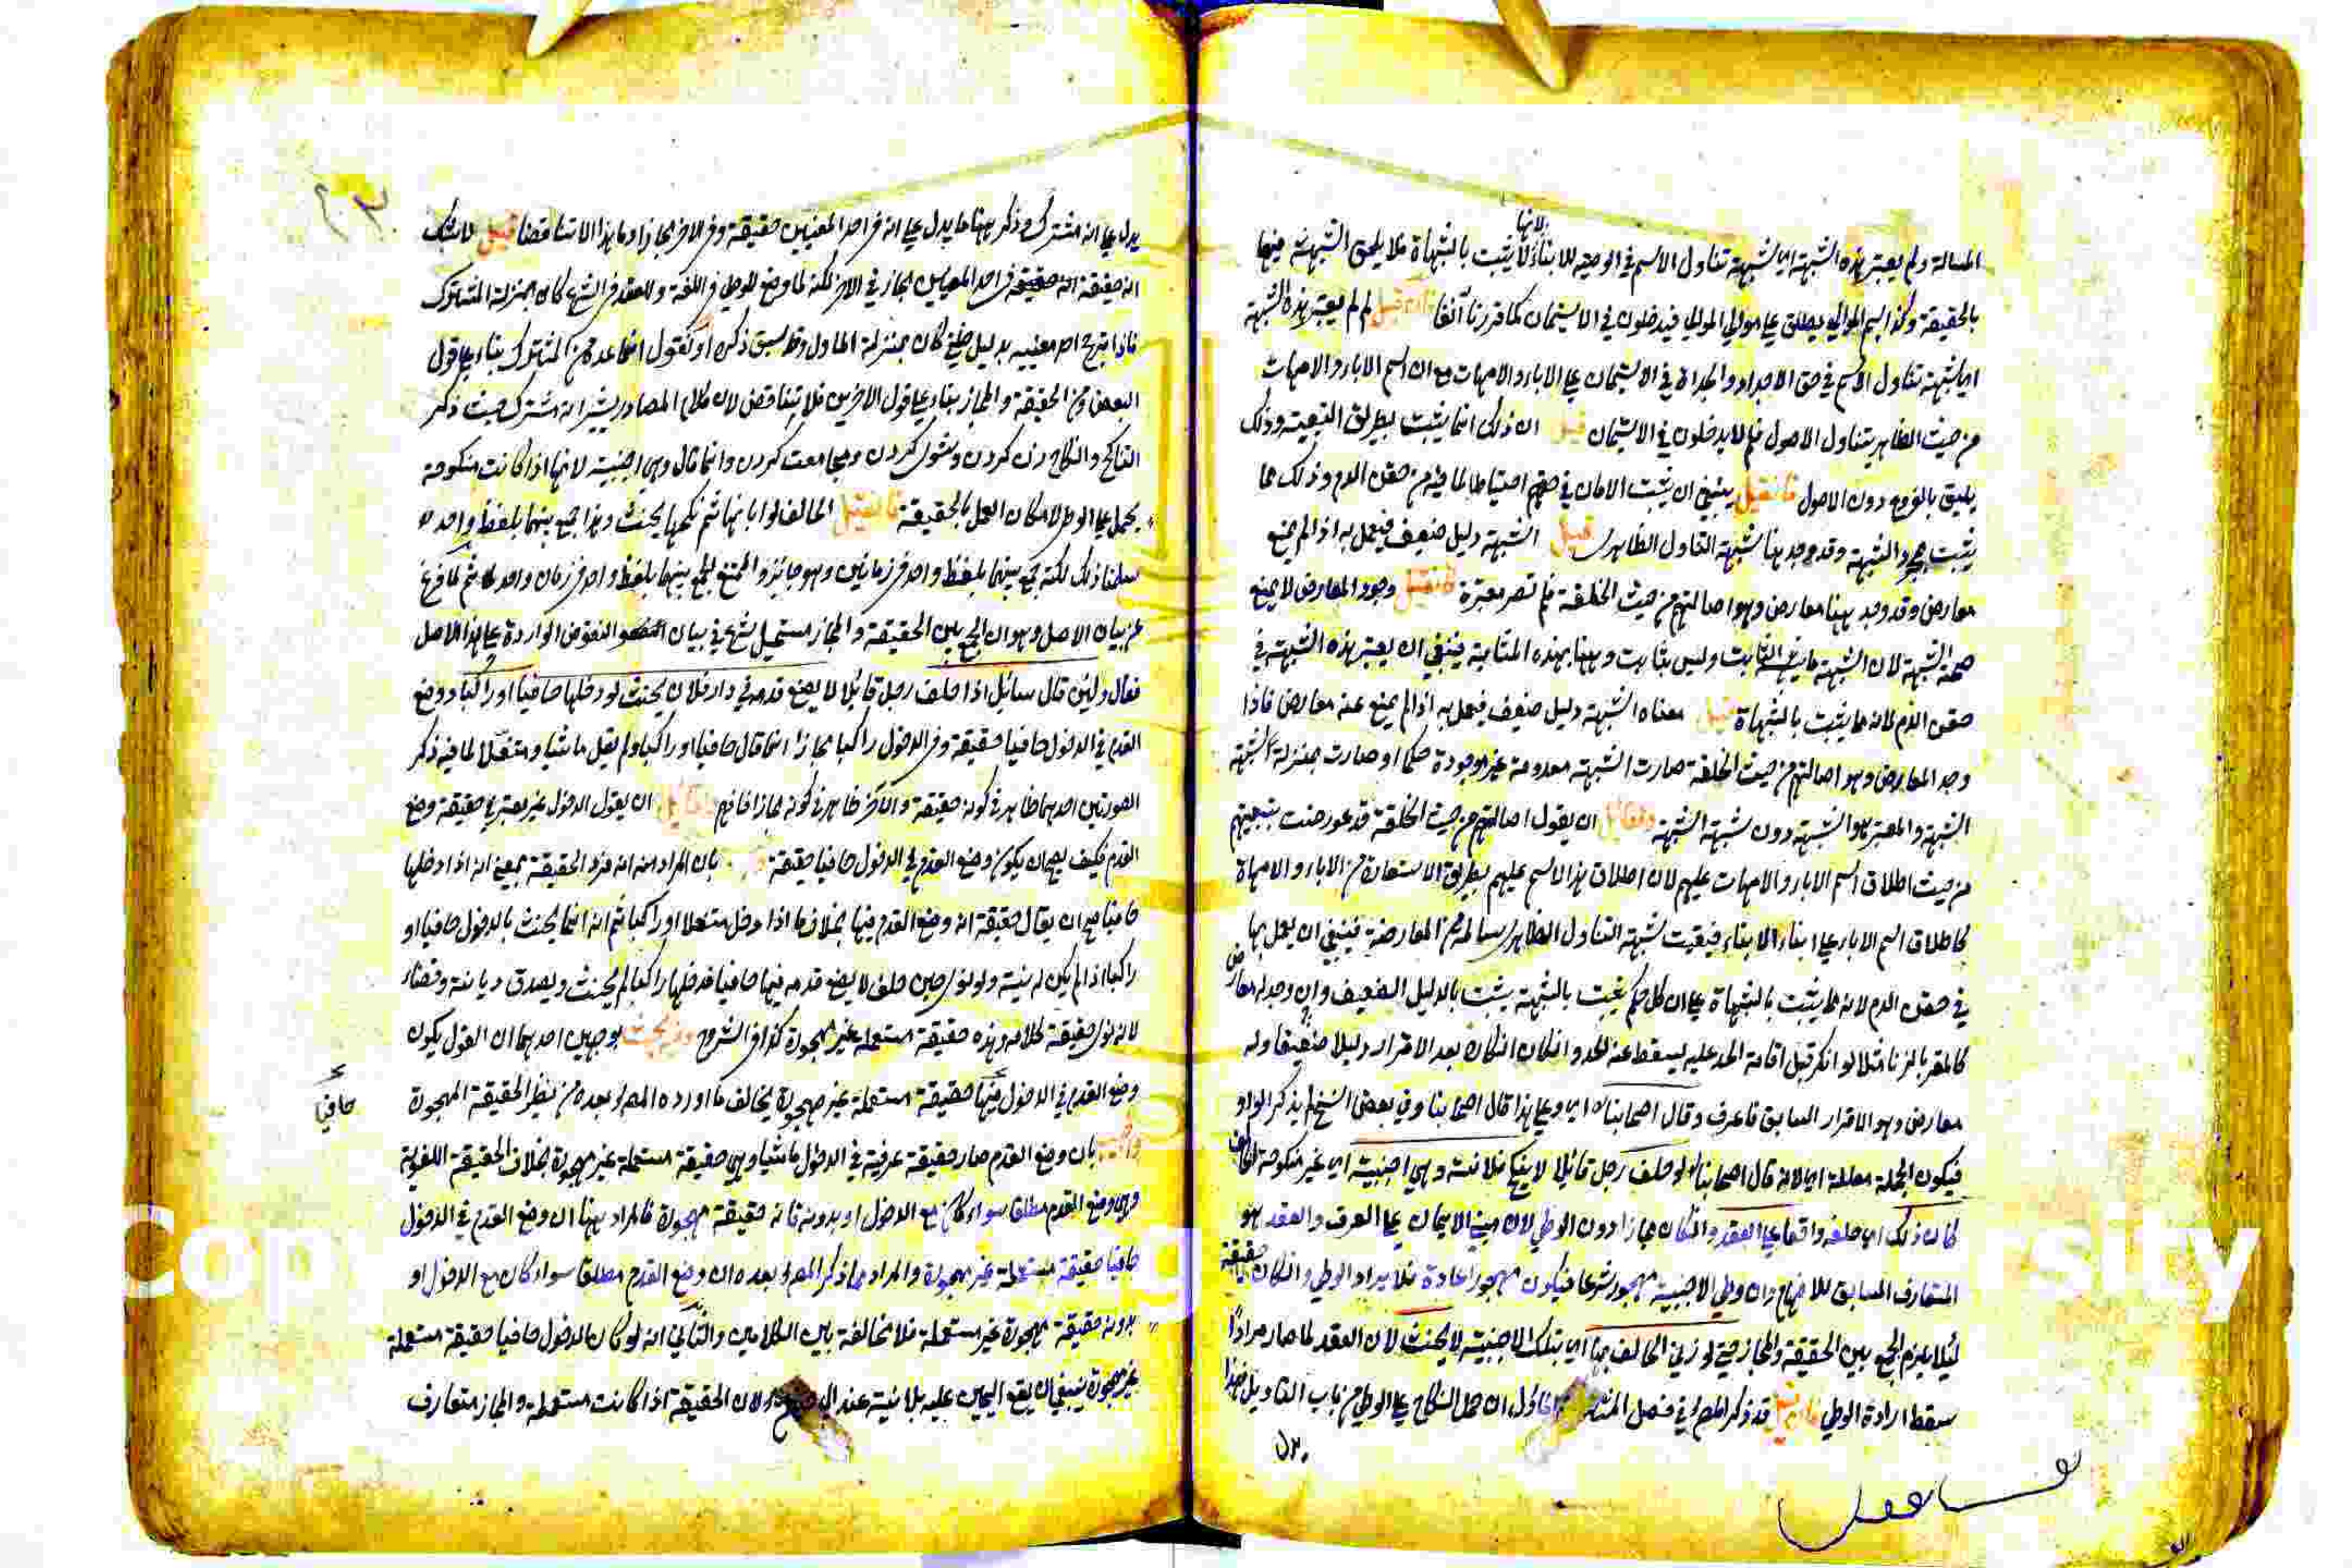 لانها
المسالة ولم يعتبر هذه الشبهة اى شبهة تناول الاسم فى الوصية للابناء لا يثبت بالشبهاة فلا يلحق الشبهة فيها
بالحقيقة وكذا اسم الموالى يطلق على موالى الموالى فيدخلون فى الاستيمان كما قررنا آنفا فان قيل لم لم يعتبر هذه الشبهة
اى شبهة تناول الاسم فى حق الاجداد والجداة فى الاستيمان على الاباء والامهات مع ان اسم الاباء والامهات
من حيث الظاهر يتناول الاصول فلم لا يدخلون فى الاستيمان قيل ان ذلك انما يثبت بطريق التبعية وذلك
يليق بالفروع دون الاصول فان قيل ينبغى ان يثبت الامان فى حقهم احتياطا لما فيه من حقن الدم وذلك مما
يثبت بمجرد الشبهة وقد وجد هنا شبهة التناول الظاهرى قيل الشبهة دليل ضعيف فيعمل به اذا لم يمنع
معارض وقد وجد ههنا معارض وهو اصالتهم من حيث الخلقة فلم تصر معتبرة فان قيل وجود المعارض لا يمنع
صحة الشبهة لان الشبهة ما يشبه الثابت وليس بثابت وههنا بهذه المثابة فينبغى ان يعتبر هذه الشبهة فى
حقن الدم لانه مما يثبت بالشبهاة قيل معناه الشبهة دليل ضعيف فيعمل به اذا لم يمنع عنه معارض فاذا
وجد المعارض وهو اصالتهم من حيث الخلقة صارت الشبهة معدومة غير موجودة حكما او صارت بمنزلة شبهة
الشبهة والمعتبر هو الشبهة دون شبهة الشبهة ولقائل ان يقول اصالتهم من حيث الخلقة قد عورضت بتبعيتهم
من حيث اطلاق اسم الاباء والامهات عليهم لان اطلاق هذا الاسم عليهم بطريق الاستعارة من الاباء والامهاة
كاطلاق اسم الابناء على ابناء الابناء فبقيت شبهة التناول الظاهرى سالمة من المعارضة فينبغى ان يعمل بها
فى حقن الدم لانه مما يثبت بالشبهاة على ان كل حكم يثبت بالشبهة يثبت بالدليل الضعيف وان وجد له معارض
كالمقر بالزنا مثلا لو انكر قبل اقامة الحد عليه يسقط عنه الحد وان كان انكاره بعد الاقرار دليلا ضعيفا وله
معارض وهو الاقرار السابق فاعرف وقال اصحابنا اى وعلى هذا قال اصحابنا وفى بعض النسخ لم يذكر الواو
فيكون الجملة معللة اى لانه قال اصحابنا لو حلف رجل قائلا لا ينكح فلانة وهى اجنبية اى غير منكوحة للحالف
كان ذلك اى حلفه واقعا على العقد وان كان مجازا دون الوطى لان مبنى الايمان على العرف والعقد هو
المتعارف السابق للافهام وان وطى الاجنبية مهجور شرعا فيكون مهجورا عادة فلا يراد الوطى وان كان حقيقة
لئلا يلزم الجمع بين الحقيقة والمجاز حتى لو زنى الحالف بها اى بتلك الاجنبية لا يحنث لان العقد لما صار مرادا
سقط ارادة الوطى فان قيل قد ذكر المص فى فصل المشترك ان حمل النكاح على الوطى من باب التأويل فهذا
يدل على انه مشترك وذكر ههنا ما يدل على انه فى احد المعنيين حقيقة وفى الاخر مجاز وما هذا الا تناقضا قيل لا شك
انه حقيقة فى احد المعنيين مجاز فى الاخر لكنه لما وضع للوطى فى اللغة وللعقد فى الشرع كان بمنزلة المشترك
فاذا ترجح احد معنييه بدليل ظنى كان بمنزلة الماول وقد سبق ذكره او نقول انما عده من المشترك بناء على قول
البعض ومن الحقيقة والمجاز بناء على قول الاخرين فلا يتناقض لان كلام المصادر يشير انه مشترك حيث ذكر
التناكح والنكاح زن كردن وشوى كردن ومجامعت كردن وانما قال وهى اجنبية لانها اذا كانت منكوحة
يحمل على الوطى لامكان العمل بالحقيقة فان قيل الحالف لو ابانها ثم نكحها يحنث وهذا جمع بينهما بلفظ واحد
سلمنا ذلك لكنه جمع بينهما بلفظ واحد فى زمانين وهو جائز والممتنع الجمع بينهما بلفظ واحد فى زمان واحد ثم لما فرغ
عن بيان الاصل وهو ان الجمع بين الحقيقة والمجاز مستحيل شرع فى بيان النقوض الواردة على هذا الاصل
فقال ولئن قال سائل اذا حلف رجل قائلا لا يضع قدمه فى دار فلان يحنث لو دخلها حافيا او راكبا ووضع
القدم فى الدخول حافيا حقيقة وفى الدخول راكبا مجازا انما قال حافيا او راكبا ولم يقل ماشيا ومتنعلا لما فيه ذكر
الصورتين احدهما ظاهر فى كونه حقيقة والاخر ظاهر فى كونه مجازا فافهم ولقائل ان يقول الدخول غير معتبر فى حقيقة وضع
القدم فكيف يصح ان يكون وضع القدم فى الدخول حافيا حقيقة بان المراد منه انه فرد الحقيقة بمعنى انه اذا دخلها
حافيا صح ان يقال حقيقة انه وضع القدم فيها بخلاف ما اذا دخل متنعلا او راكبا ثم انه انما يحنث بالدخول حافيا او
راكبا اذا لم يكن له نية ولو نوى حين حلف لا يضع قدمه فيها حافيا فدخلها راكبا لم يحنث ويصدق ديانة وقضاء
لانه نوى حقيقة كلامه وهذه حقيقة مستعملة غير مهجورة كذا فى الشروح وفيه بحث بوجهين احدهما ان القول بكون
وضع القدم فى الدخول حافيا حقيقة مستعملة غير مهجورة يخالف ما اورده المص بعده من نظير الحقيقة المهجورة
حافيا
واجيب بان وضع القدم صار حقيقة عرفية فى الدخول ماشيا وهى حقيقة مستعملة غير مهجورة بخلاف الحقيقة اللغوية
وهى وضع القدم مطلقا سواء كان مع الدخول او بدونه فانه حقيقة مهجورة فالمراد ههنا ان وضع القدم فى الدخول
حافيا حقيقة مستعملة غير مهجورة والمراد مما ذكر المص بعده ان وضع القدم مطلقا سواء كان مع الدخول او
بدونه حقيقة مهجورة غير مستعملة فلا مخالفة بين الكلامين والثانى انه لو كان الدخول حافيا حقيقة مستعملة
غير مهجورة ينبغى ان يقع اليمين عليه بلا نية عند ابى حنيفة لان الحقيقة اذا كانت مستعملة والمجاز متعارف